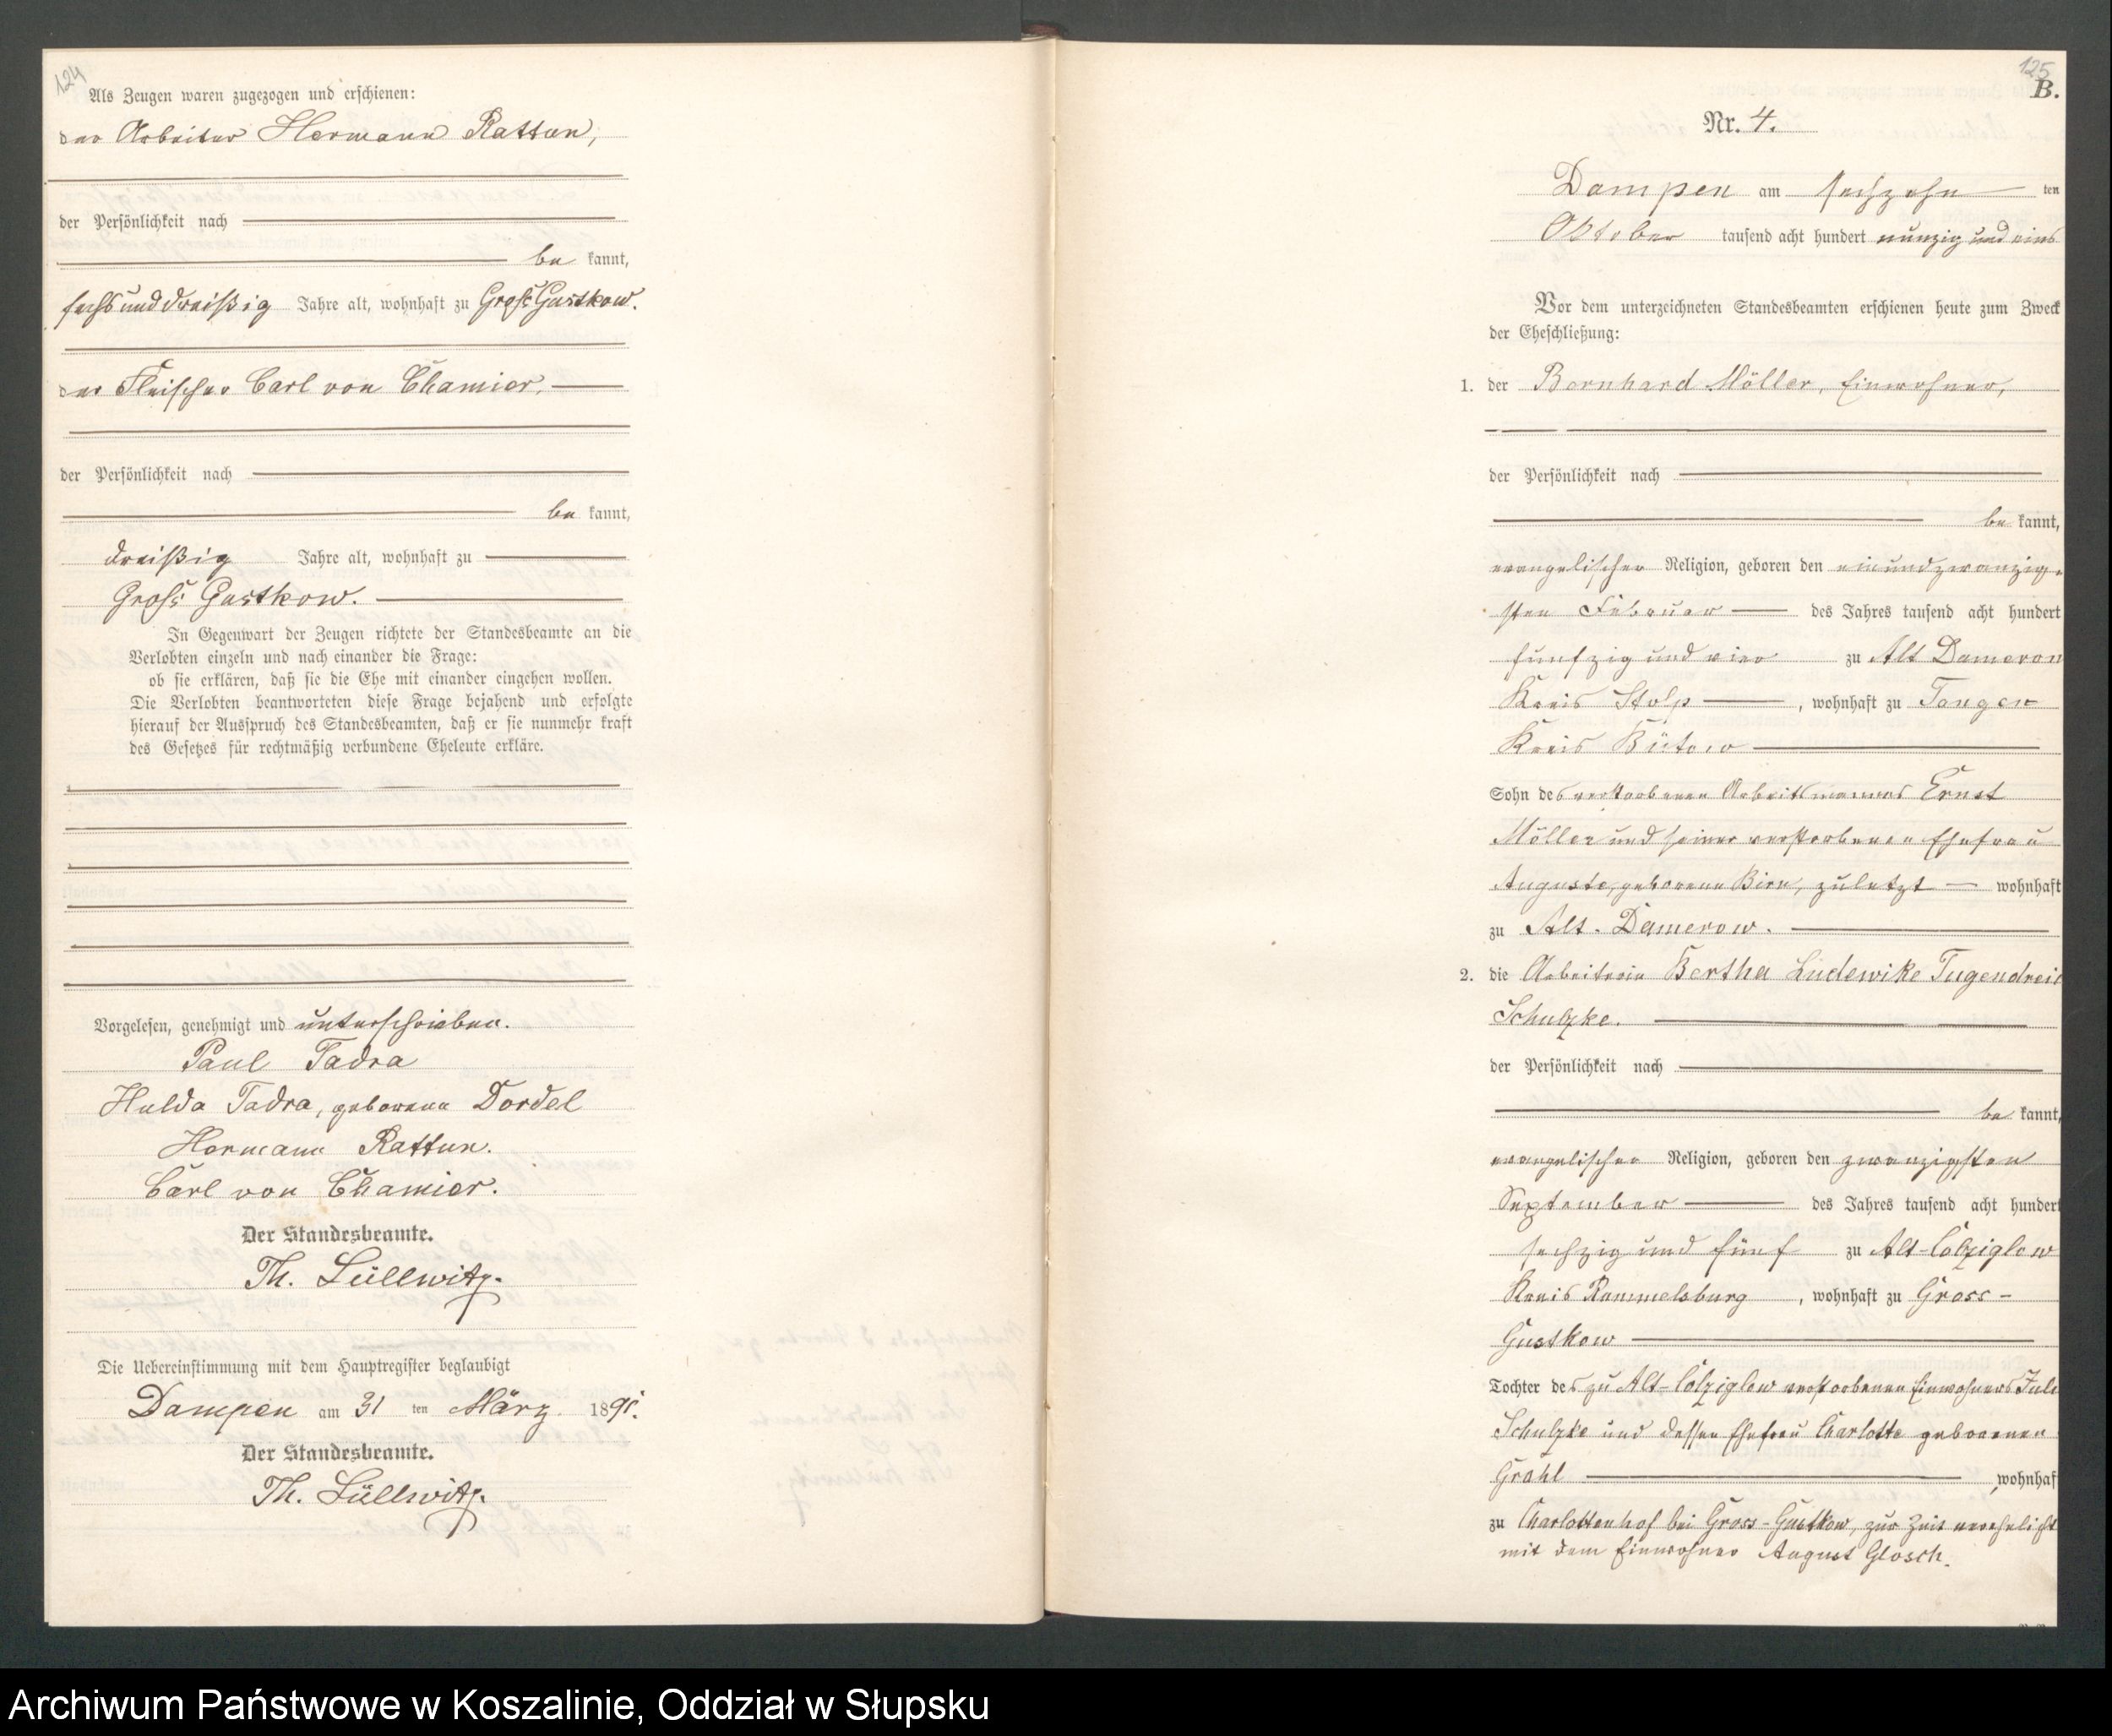 124
Als Zeugen waren zugezogen und erschienen:
der Arbeiter Hermann Rattun,
der Persönlichkeit nach
be kannt,
sechsunddreißig Jahre alt, wohnhaft zu Groß Gustkow.
der Fleischer Carl von Chamier,
der Persönlichkeit nach
be kannt,
dreißig Jahre alt, wohnhaft zu
Groß Gustkow.
In Gegenwart der Zeugen richtete der Standesbeamte an die
Verlobten einzeln und nach einander die Frage:
ob sie erklären, daß sie die Ehe mit einander eingehen wollen.
Die Verlobten beantworteten diese Frage bejahend und erfolgte
hierauf der Ausspruch des Standesbeamten, daß er sie nunmehr kraft
des Gesetzes für rechtmäßig verbundene Eheleute erkläre.
Vorgelesen, genehmigt und unterschrieben.
Paul Tadra
Hulda Tadra, geborene Dordel
Hermann Rattun.
Carl von Chamier.
Der Standesbeamte.
Th. Lüllwitz.
Die Uebereinstimmung mit dem Hauptregister beglaubigt
Dampen am 31 ten März 1891.
Der Standesbeamte.
Th. Lüllwitz.
125
B.
Nr. 4.
Dampen am sechzehn ten
Oktober tausend acht hundert neunzig und eins
Vor dem unterzeichneten Standesbeamten erschienen heute zum Zweck
der Eheschließung:
1. der Bernhard Möller, Einwohner,
der Persönlichkeit nach
be kannt,
evangelischer Religion, geboren den einundzwanzig-
sten Februar des Jahres tausend acht hundert
fünfzig und vier zu Alt Damerow
Kreis Stolp, wohnhaft zu Tangen
Kreis Bütow
Sohn des verstorbenen Arbeitsmannes Ernst
Möller und seiner verstorbenen Ehefrau
Auguste, geborene Birr, zuletzt wohnhaft
zu Alt-Damerow.
2. die Arbeiterin Bertha Ludewike Tugendreic
Schulzke.
der Persönlichkeit nach
be kannt,
evangelischer Religion, geboren den zwanzigsten
September des Jahres tausend acht hundert
sechzig und fünf zu Alt-Colziglow
Kreis Rummelsburg, wohnhaft zu Gross-
Gustkow
Tochter des zu Alt-Colziglow verstorbenen Einwohners Juli
Schulzke und dessen Ehefrau Charlotte geborenen
Grahl, wohnhaf
zu Charlottenhof bei Gross-Gustkow, zur Zeit verehelicht
mit dem Einwohner August Glosch.
Archiwum Państwowe w Koszalinie, Oddział w Słupsku